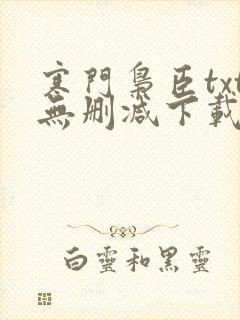 寒門梟臣txt
無刪減下載
白靈和黑靈